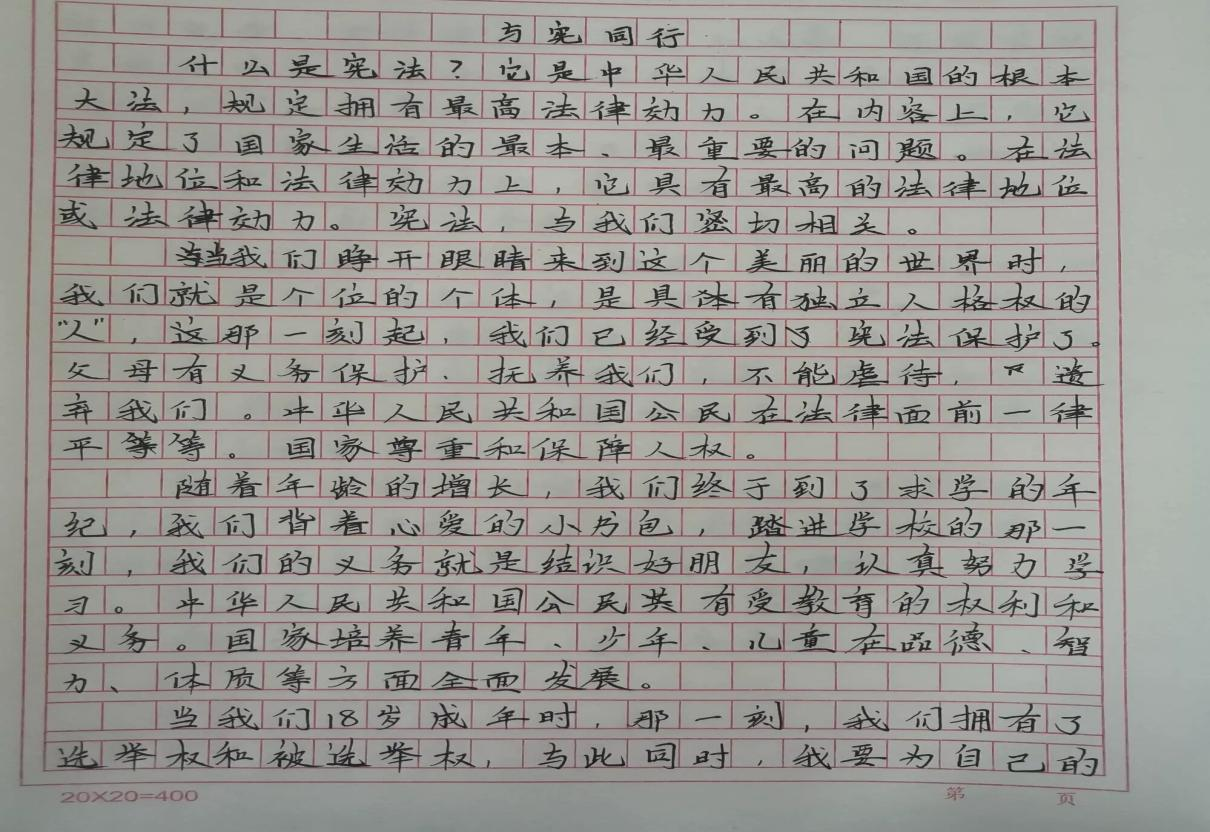 与宪同行
什么是宪法?它是中华人民共和国的根本
大法,规定拥有最高法律效力。在内容上,它
规定了国家生活的最本、最重要的问题。在法
律地位和法律效力上,它具有最高的法律地位
或法律效力。宪法,与我们密切相关。
当我们睁开眼睛来到这个美丽的世界时,
我们就是个位的个体,是具体有独立人格权的
“人”,这那一刻起,我们已经受到了宪法保护了。
父母有义务保护、抚养我们,不能虐待,不遗
弃我们。中华人民共和国公民在法律面前一律
平等等。国家尊重和保障人权。
随着年龄的增长,我们终于到了求学的年
纪,我们背着心爱的小书包,踏进学校的那一
刻,我们的义务就是结识好朋友,认真努力学
习。中华人民共和国公民共有受教育的权利和
义务。国家培养青年、少年、儿童在品德、智
力、体质等方面全面发展。
当我们18岁成年时,那一刻,我们拥有了
选举权和被选举权,与此同时,我要为自己的
20X20=400
第 页